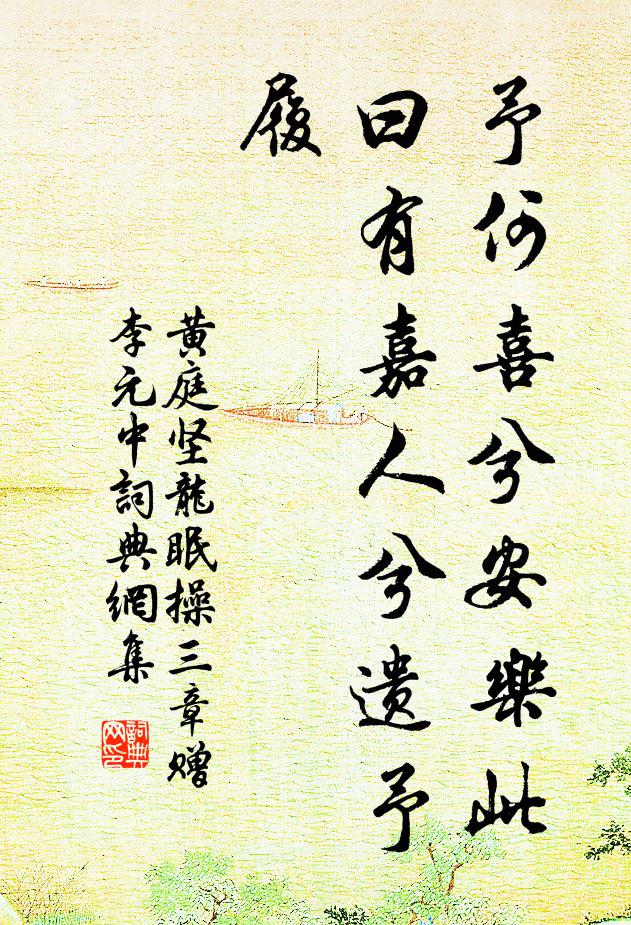 予何喜兮安樂此
曰有嘉人兮遗予
履
黄庭坚龍眠操三章赠
李元中詞典網集
詞典
网印